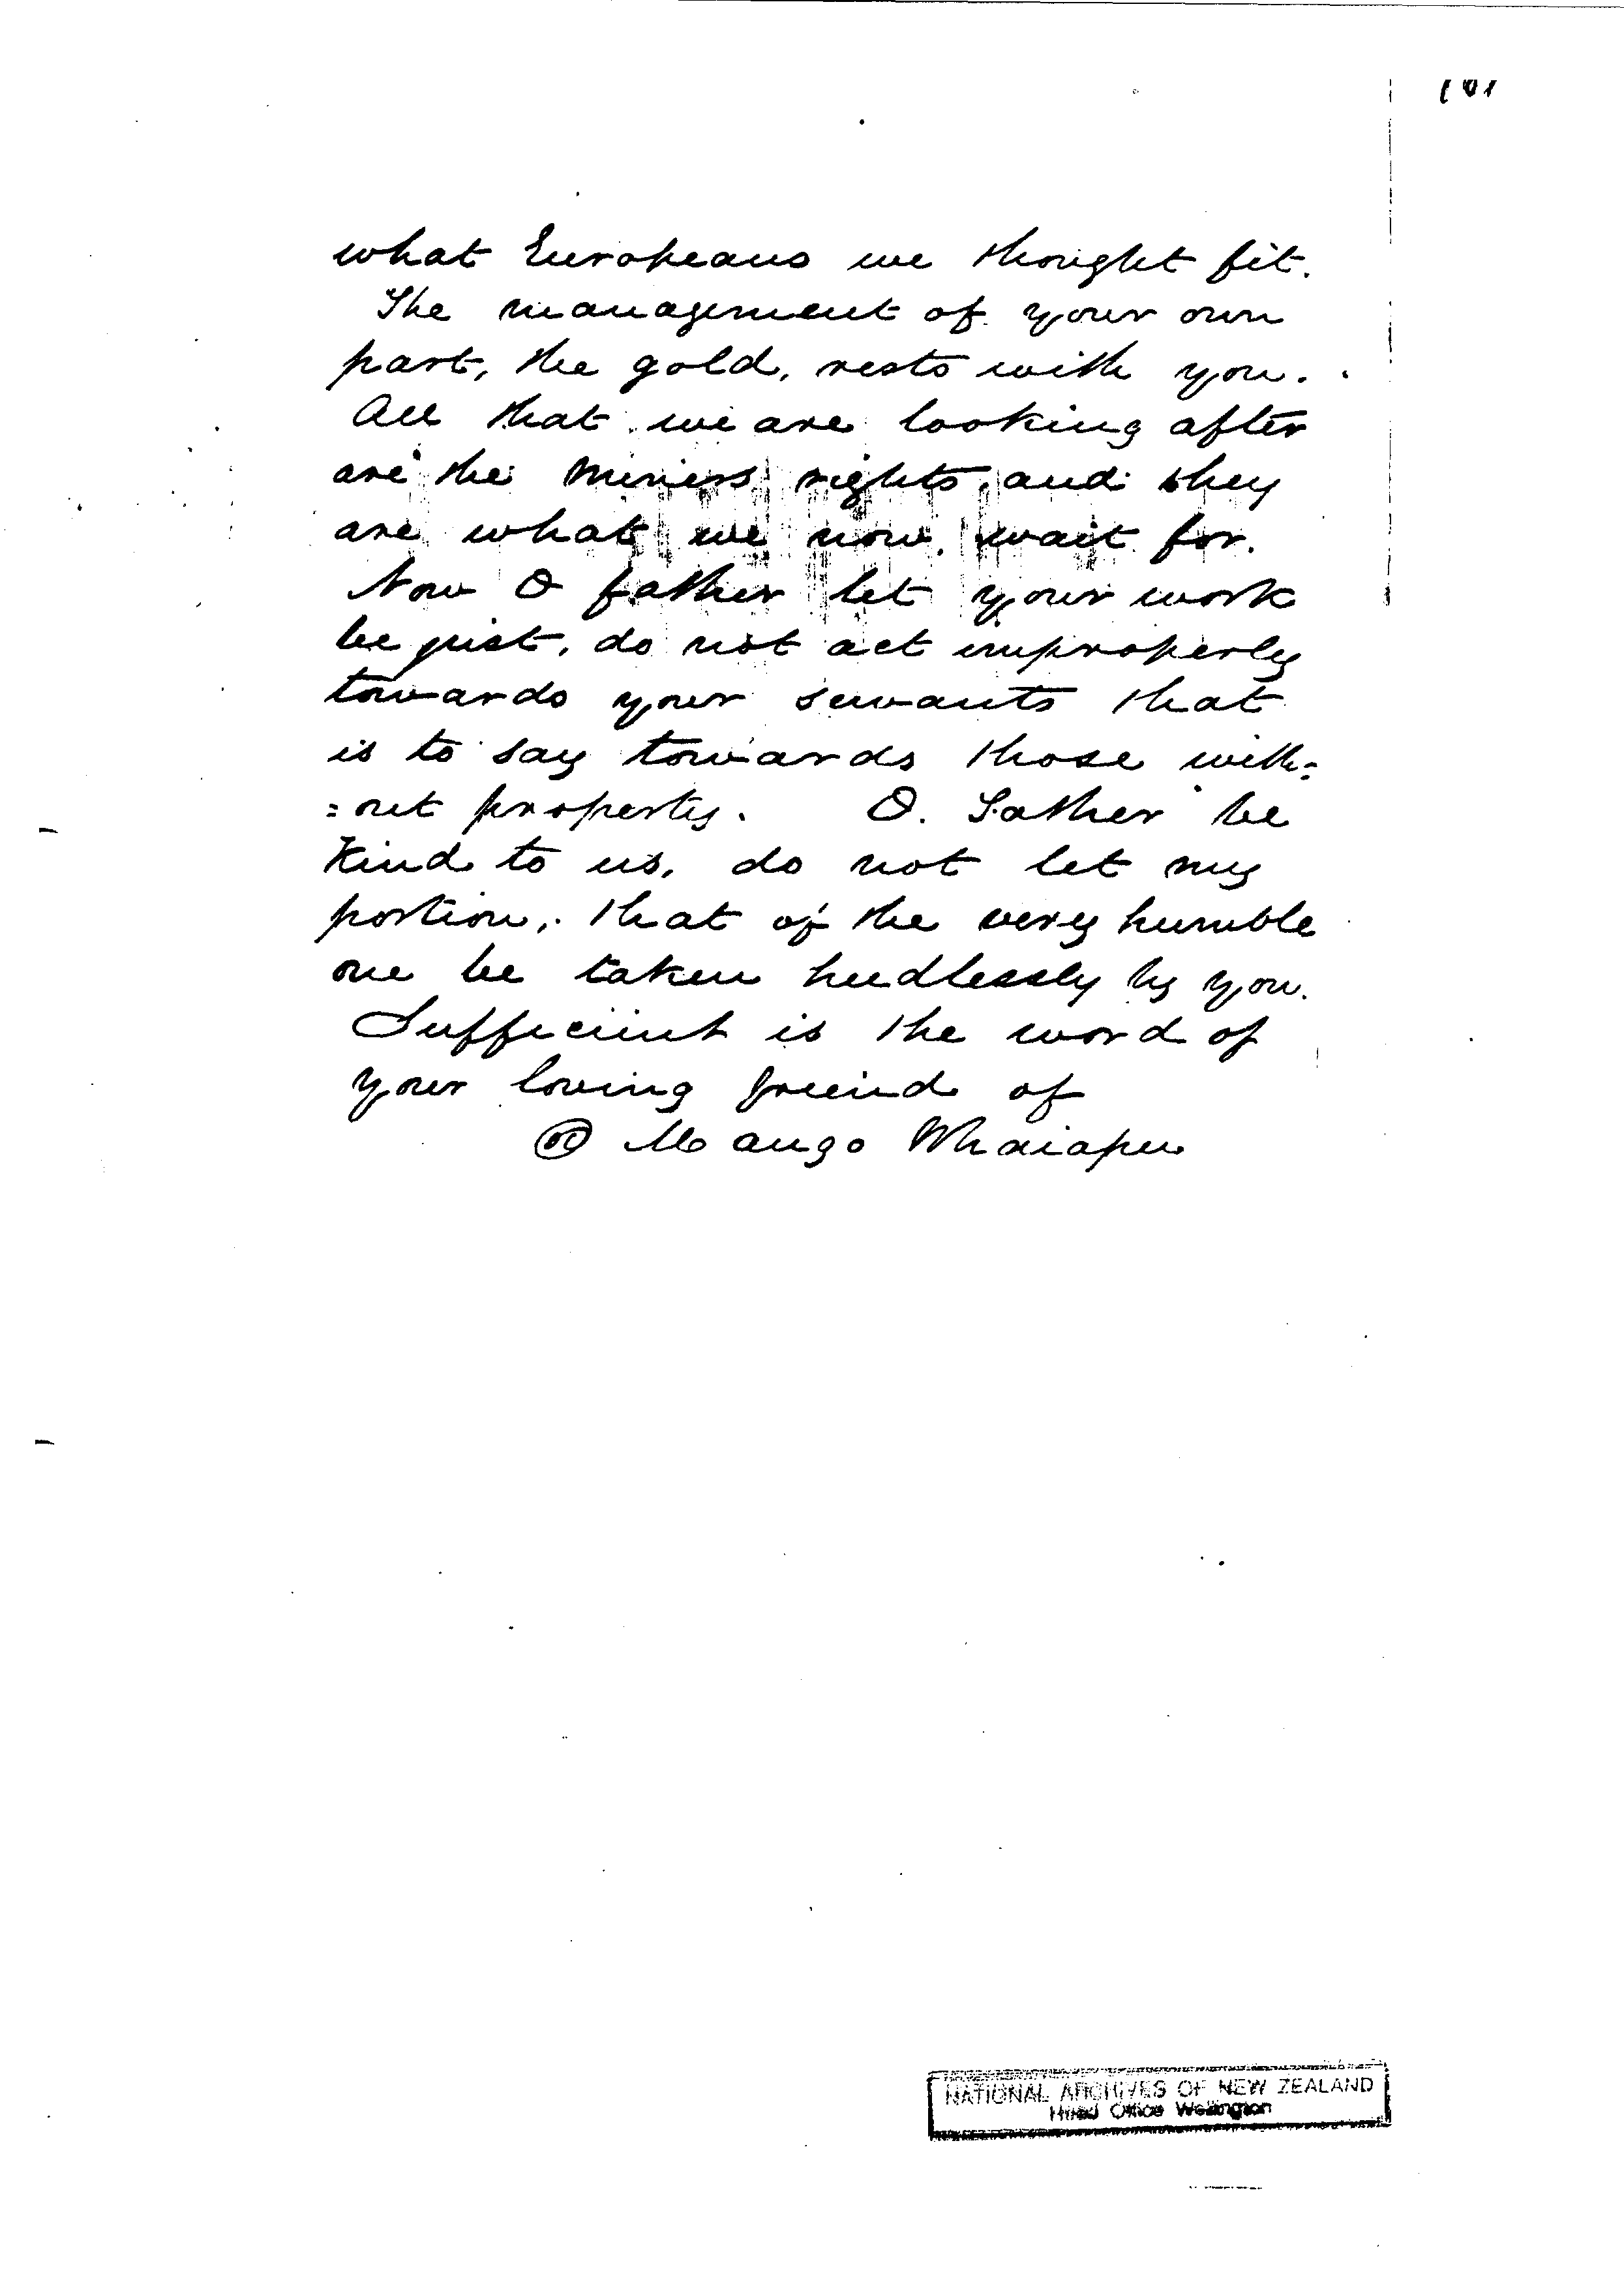 what Europeans we thought fit.
The management of your own
part, the gold, rests with you.
All that we are looking after
are the Miners rights, and they
are what we now wait for.
Now O father let your work
be just, do not act improperly
towards your servants that
is to say towards those with=
=out property. O. Father be
Kind to us, do not let my
portion, that of the very humble
one be taken heedlessly by you.
Sufficient is the word of
your loving friend of
Mango Whaiapu
NATIONAL ARCHIVES OF NEW ZEALAND
Head Office Wellington